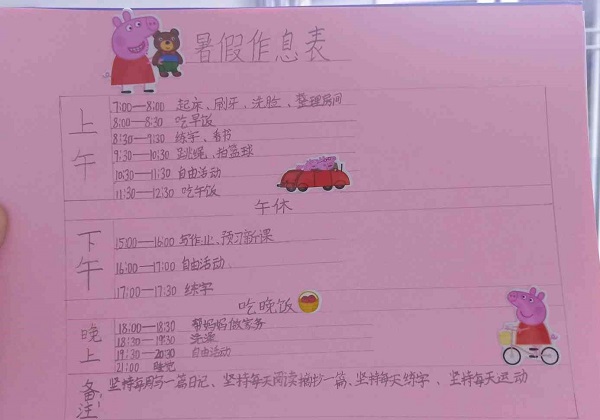 暑假作息表
上午
7:00—8:00 起床、刷牙、洗脸、整理房间
8:00—8:30 吃早饭
8:30—9:30 练字、看书
9:30—10:30 跳绳、拍篮球
10:30—11:30 自由活动
11:30—12:30 吃午饭
午休
下午
15:00—16:00 写作业、预习新课
16:00—17:00 自由活动、
17:00—17:30 练字
吃晚饭
晚上
18:00—18:30 帮妈妈做家务
18:30—19:30 洗澡
19:30—20:30 自由活动
21:00 睡觉
备注:
坚持每周写一篇日记、坚持每天阅读摘抄一篇、坚持每天练字、坚持每天运动